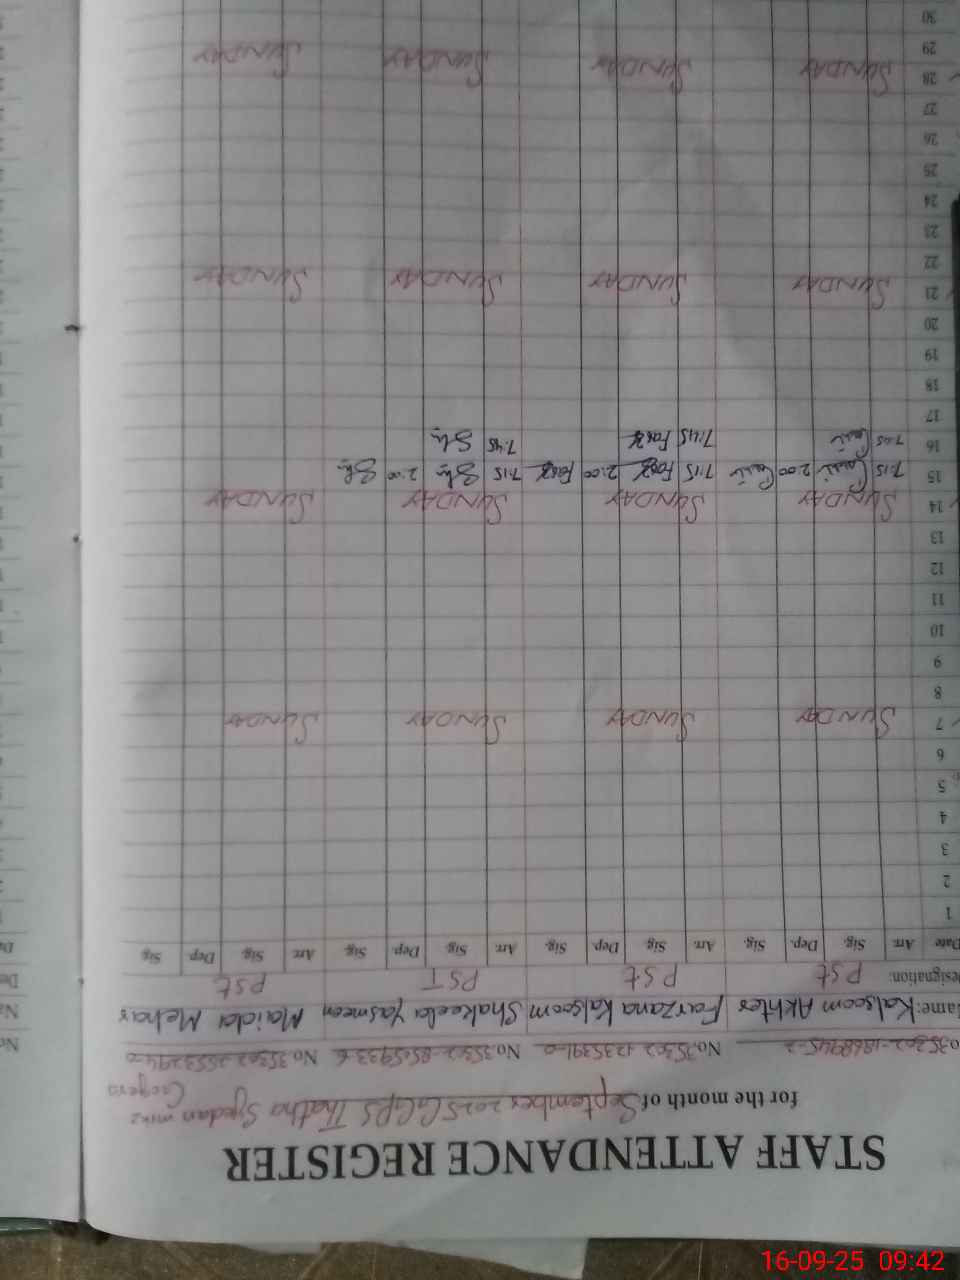 STAFF ATTENDANCE REGISTER
for the month of September 2025 GGPS Thatha Syedan
No. 35302-1868945-2 No. 35302-1235391-0 No. 35302-8505933-6 No. 35302-2553294-0
Name: Kalsoom Akhter Farzana Kalsoom Shakeela Yasmeen Maida Mehar
Designation: PSt PSt PST PSt
Date Arr. Sig. Dep. Sig. Arr. Sig. Dep. Sig. Arr. Sig. Dep. Sig. Arr. Sig. Dep. Sig
1
2
3
4
5
6
7 SUNDAY SUNDAY SUNDAY SUNDAY
8
9
10
11
12
13
14 SUNDAY SUNDAY SUNDAY SUNDAY
15 7:15 2:00 7:15 2:00 7:15 2:00
16 7:45 7:45 7:45
17
18
19
20
21 SUNDAY SUNDAY SUNDAY SUNDAY
22
23
24
25
26
27
28 SUNDAY SUNDAY SUNDAY SUNDAY
29
30
16-09-25 09:42